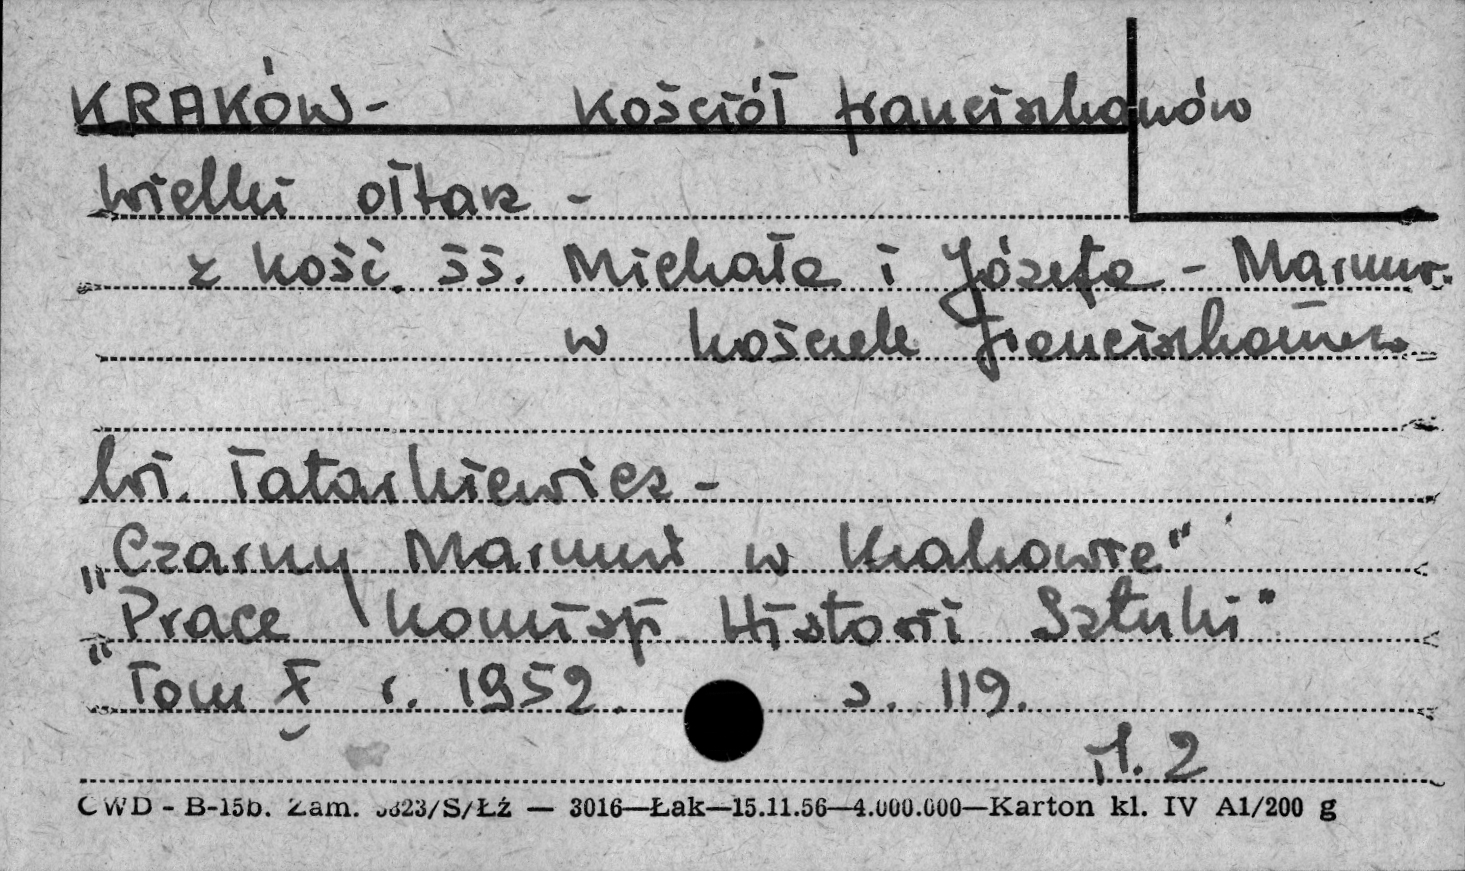 KRAKÓW - Kościół franciszkanów
Wielki ołtarz -
z kość. śś. Michała i Józefa - Marmur.
w kościele franciszkanów
Wł. Tatarkiewicz -
„Czarny Marmur w Krakowie"
„Prace Komisji Historii Sztuki"
Tom X r. 1952. s. 119.
il. 2
CWD - B-15b. Zam. 5823/S/Łź — 3016—Łak—15.11.56—4.000.000—Karton kl. IV A1/200 g